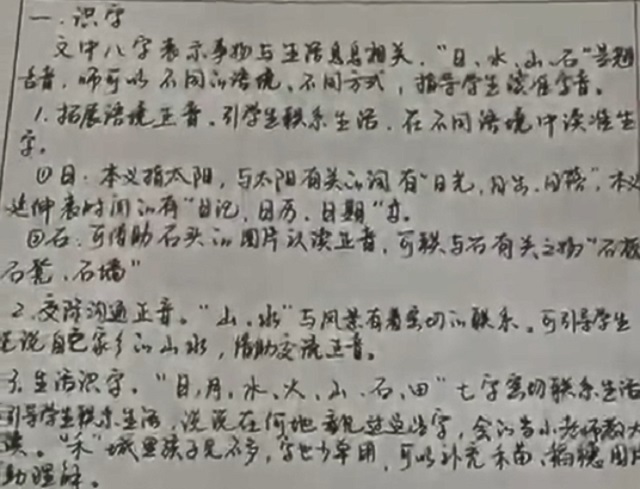 一、识字
文中八字表示事物与生活息息相关，"日、水、山、石"是翘
舌音，师可以不同的语境、不同方式，指导学生读准字音。
1、拓展语境正音。引学生联系生活，在不同语境中读准生
字。
①日：本义指太阳，与太阳有关的词有"日光，日出，日落"，本义
延伸表时间的有"日记，日历，日期"音。
②石：可借助石头的图片认读正音，可联与石有关之物"石板
石凳、石墙"
2、交际沟通正音。"山、水"与风景有着密切的联系。可引导学生
说自己家乡的山水，借助交流正音。
3、生活识字。"日、月、水、火、山、石、田"七字密切联系生活
引导学生联系生活，说说在何地看见过这些字，会的当小老师教大
读。"禾"城里孩子见不多，字也少单用，可以补充禾苗、稻穗图片
助理解。